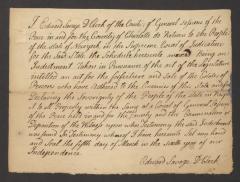 I Edward Savage D Clerk of the Courts of General Sessions of the
Peace in and for the County of Charlotte do Return to the People
of the State of Newyork in the Supreme Court of Judicature
for the said State the Schedule hereunto annexed Being an
Indictment Taken in Pursuance of the act of the Legislature
entitled an act for the forfeiture and Sale of the Estates of
Persons who have Adhered to the Enemies of this State and for
Declaring the Sovereignty of the People of the State in Respect
to all Property within the Same at a Court of General Sessions
of the Peace held in and for the County and the Examination or
Deposition of the Witness upon whose Testimony the said Indictment
was found In Testimony whereof I have hereunto Set my hand
and Seal the fifth day of March in the Sixth year of our
Independence.
Edward Savage D Clerk